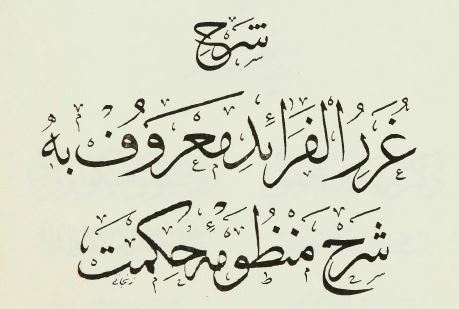 شرح
غُرَرُ الفَرائِد معروف به
شرح منظومهٔ حکمت